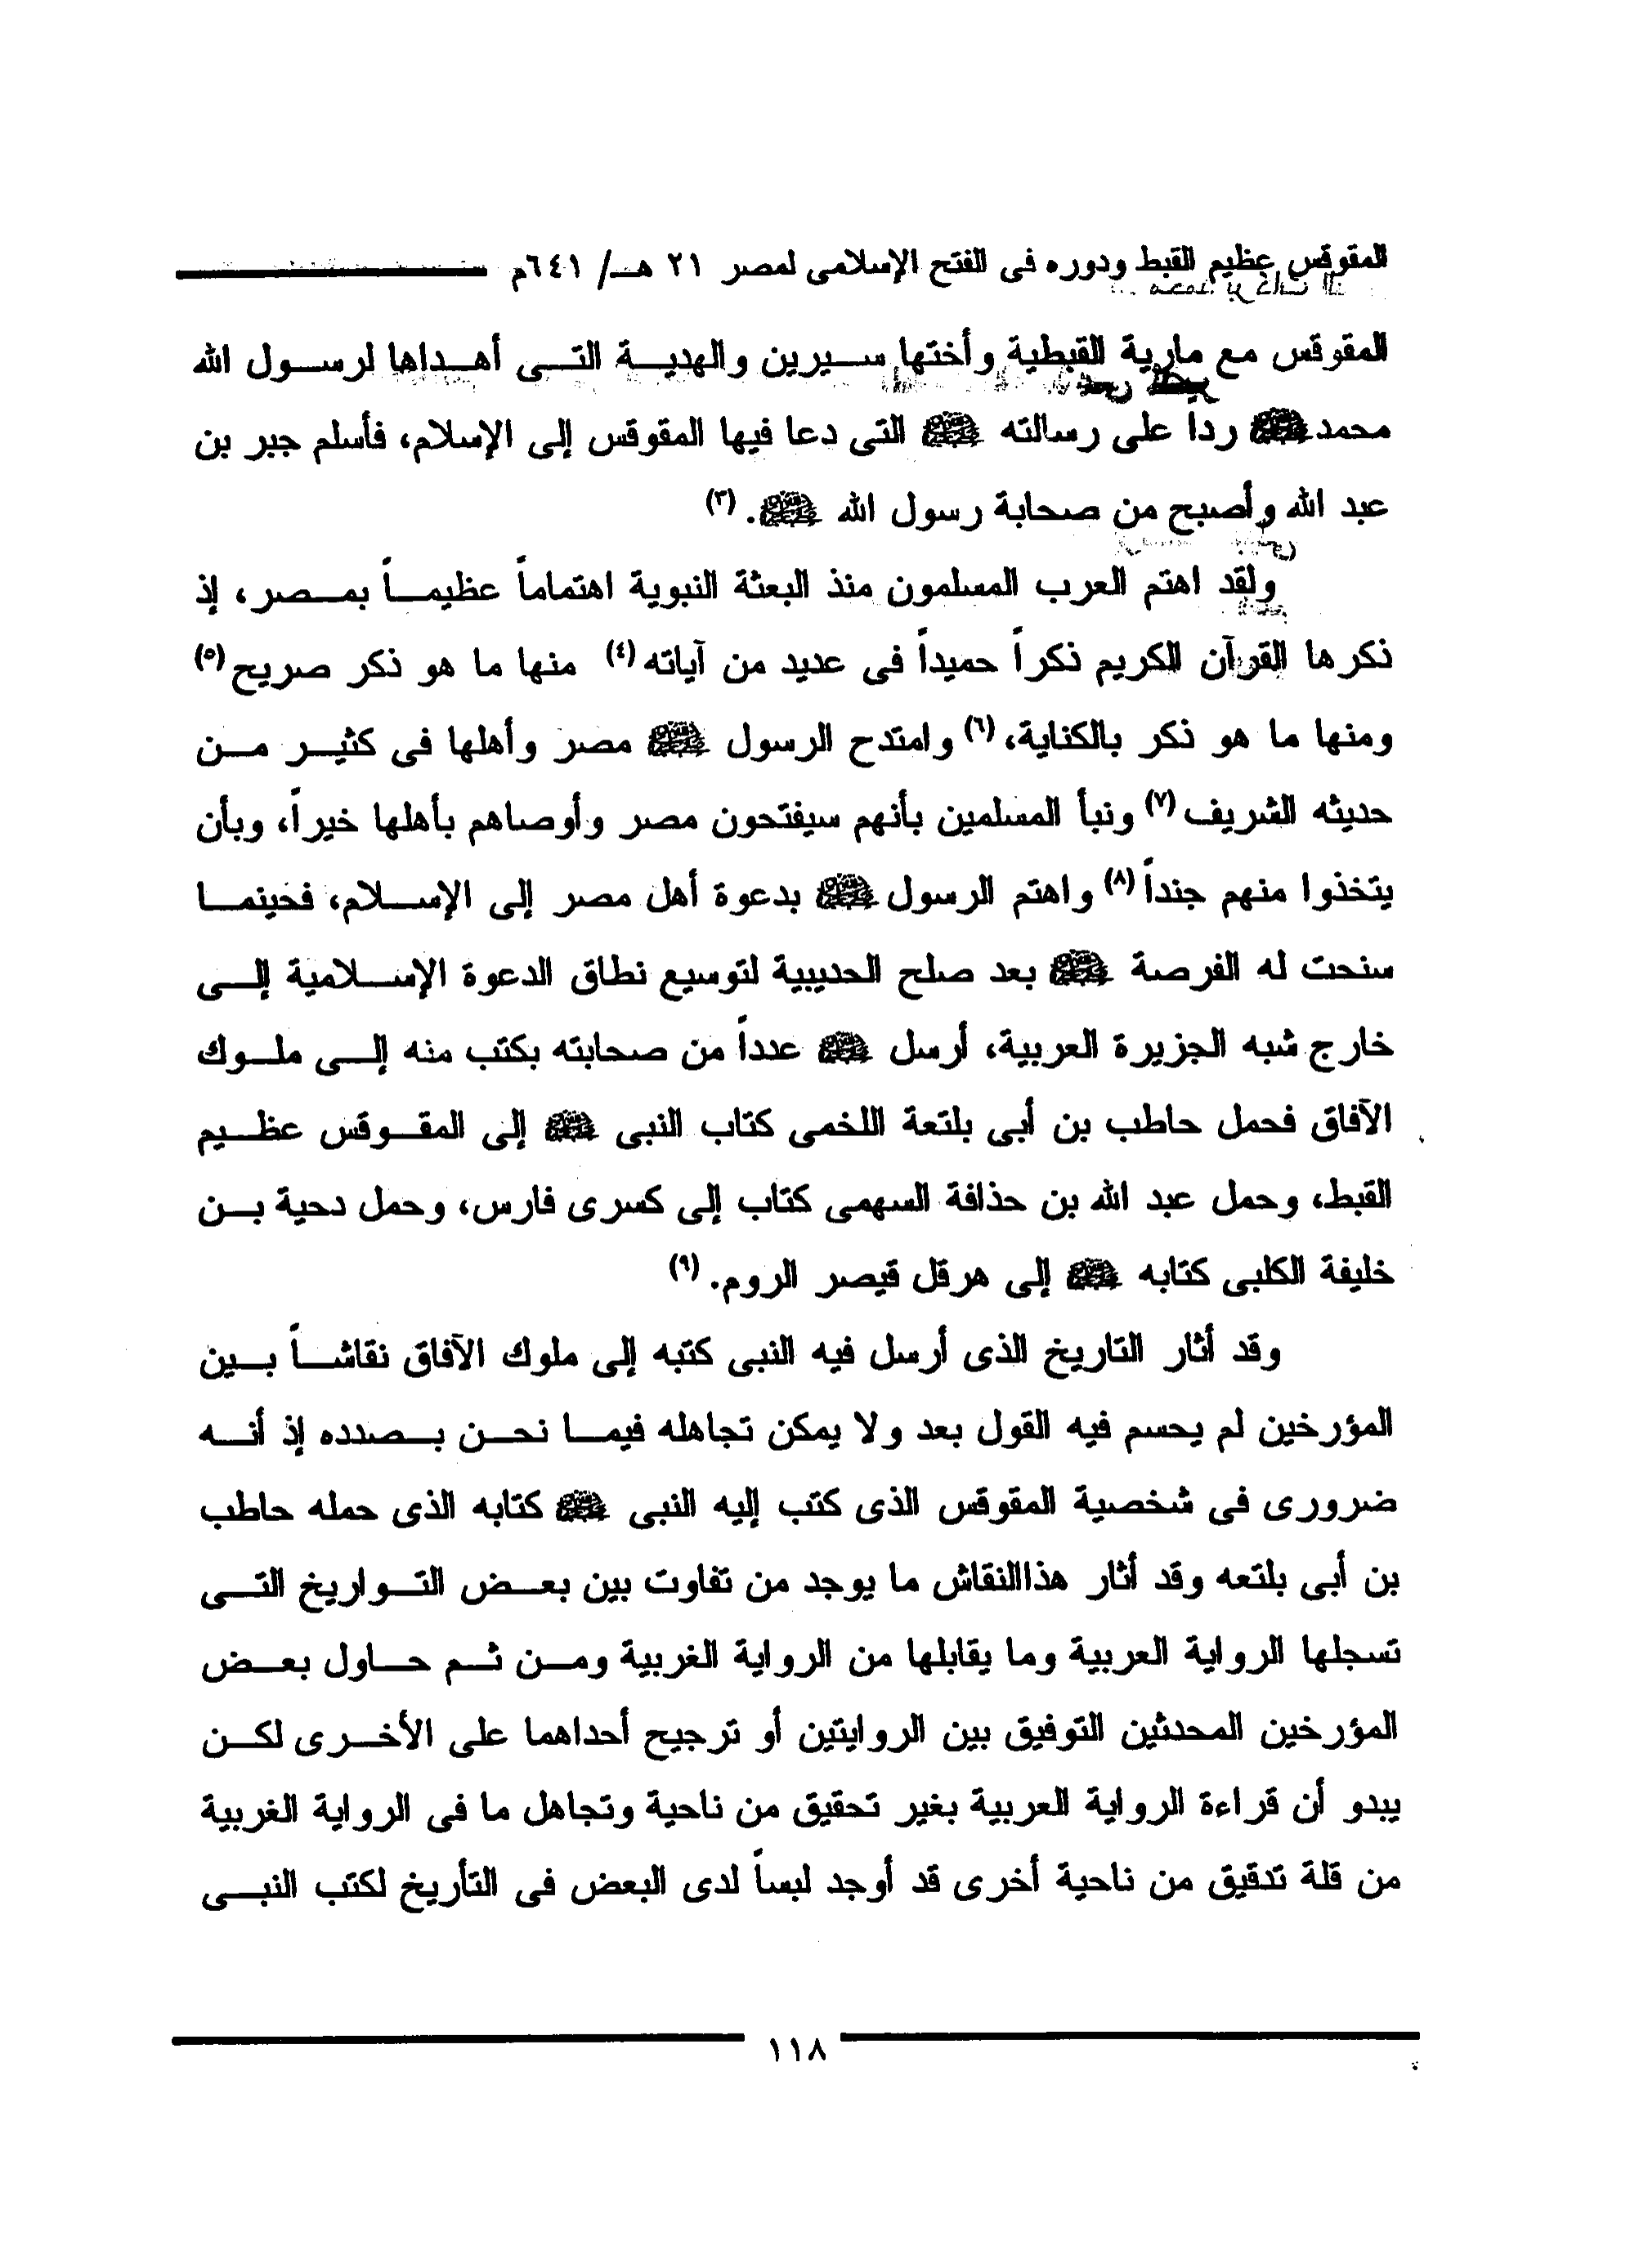 المقوقس عظيم القبط ودوره فى الفتح الإسلامى لمصر ٢١ هـ/ ٦٤١م
المقوقس مع مارية القبطية وأختها سيرين والهدية التى أهداها لرسول الله
محمد ﷺ ردا على رسالته ﷺ التى دعا فيها المقوقس إلى الإسلام، فأسلم جبر بن
عبد الله وأصبح من صحابة رسول الله ﷺ. (٣)
ولقد اهتم العرب المسلمون منذ البعثة النبوية اهتماماً عظيماً بمصر، إذ
ذكرها القرآن الكريم ذكراً حميداً فى عديد من آياته (٤) منها ما هو ذكر صريح (٥)
ومنها ما هو ذكر بالكناية، (٦) وامتدح الرسول ﷺ مصر وأهلها فى كثير من
حديثه الشريف (٧) ونبأ المسلمين بأنهم سيفتحون مصر وأوصاهم بأهلها خيراً، وبأن
يتخذوا منهم جنداً (٨) واهتم الرسول ﷺ بدعوة أهل مصر إلى الإسلام، فحينما
سنحت له الفرصة ﷺ بعد صلح الحديبية لتوسيع نطاق الدعوة الإسلامية إلى
خارج شبه الجزيرة العربية، أرسل ﷺ عدداً من صحابته بكتب منه إلى ملوك
الآفاق فحمل حاطب بن أبى بلتعة اللخمى كتاب النبى ﷺ إلى المقوقس عظيم
القبط، وحمل عبد الله بن حذافة السهمى كتاب إلى كسرى فارس، وحمل دحية بن
خليفة الكلبى كتابه ﷺ إلى هرقل قيصر الروم. (٩)
وقد أثار التاريخ الذى أرسل فيه النبى كتبه إلى ملوك الآفاق نقاشاً بين
المؤرخين لم يحسم فيه القول بعد ولا يمكن تجاهله فيما نحن بصدده إذ أنه
ضرورى فى شخصية المقوقس الذى كتب إليه النبى ﷺ كتابه الذى حمله حاطب
بن أبى بلتعه وقد أثار هذاالنقاش ما يوجد من تفاوت بين بعض التواريخ التى
تسجلها الرواية العربية وما يقابلها من الرواية الغربية ومن ثم حاول بعض
المؤرخين المحدثين التوفيق بين الروايتين أو ترجيح أحداهما على الأخرى لكن
يبدو أن قراءة الرواية العربية بغير تحقيق من ناحية وتجاهل ما فى الرواية الغربية
من قلة تدقيق من ناحية أخرى قد أوجد لبساً لدى البعض فى التأريخ لكتب النبى
١١٨